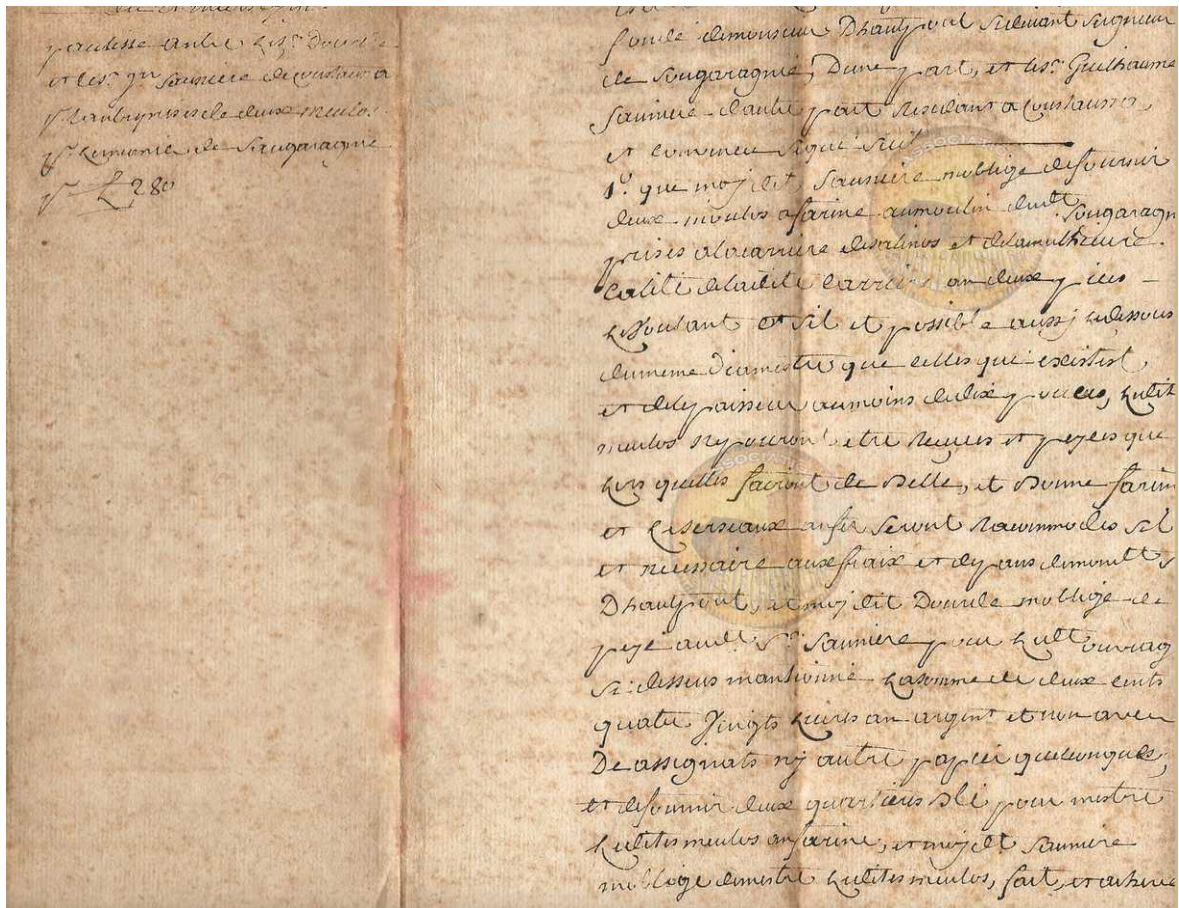 et
pactesse antre les Srs Dourde
et les. gn Sauniere de coustaussa
pr lantreprise de deux meulos
pr lemoulin de Sougaragne
pr £ 280
fondé demonsieur Dhautpoul Seigneur
de Sougaragne, Dune part, et lesr Guilhaume
Sauniere dautre part residant a Coustaussa,
et conveneu Sique Suit
1º. que moj dit Sauniere moblige defournir
deux meulos afarine aumoulin dudt Sougaragn
prises alacarriere desalinos et delameilheure
Calité deladite Carriere an deux pieces
et Sil et possible aussj ledessous
dumeme Diamestre que celles que existest
et delepaisseur aumoins dedix pouces, lesdit
meulos ny pouront etre recues et payees que
lors quelles fairont de Belle, et Bonne farin
et Leserseaux anfer Seront Racommodes Sil
et necessaire aux fraix et depans dumondt Sr
Dhautpoul, et moj dit Dourde moblige de
peye audt Sr. Sauniere pour ledt ouvrag
Si dessus mantionné lasomme de deux cents
quatre Vingts Livres an argent et non aveu
De assignats nj autre papier quelconques,
et defournir deux quartieus Blé pour mestre
Lesdites meulos anfarine, et moj dt Sauniere
moblige demestre Lesdites meulos, fait, et acheve
ASSOCIATION
ASSOCIATION